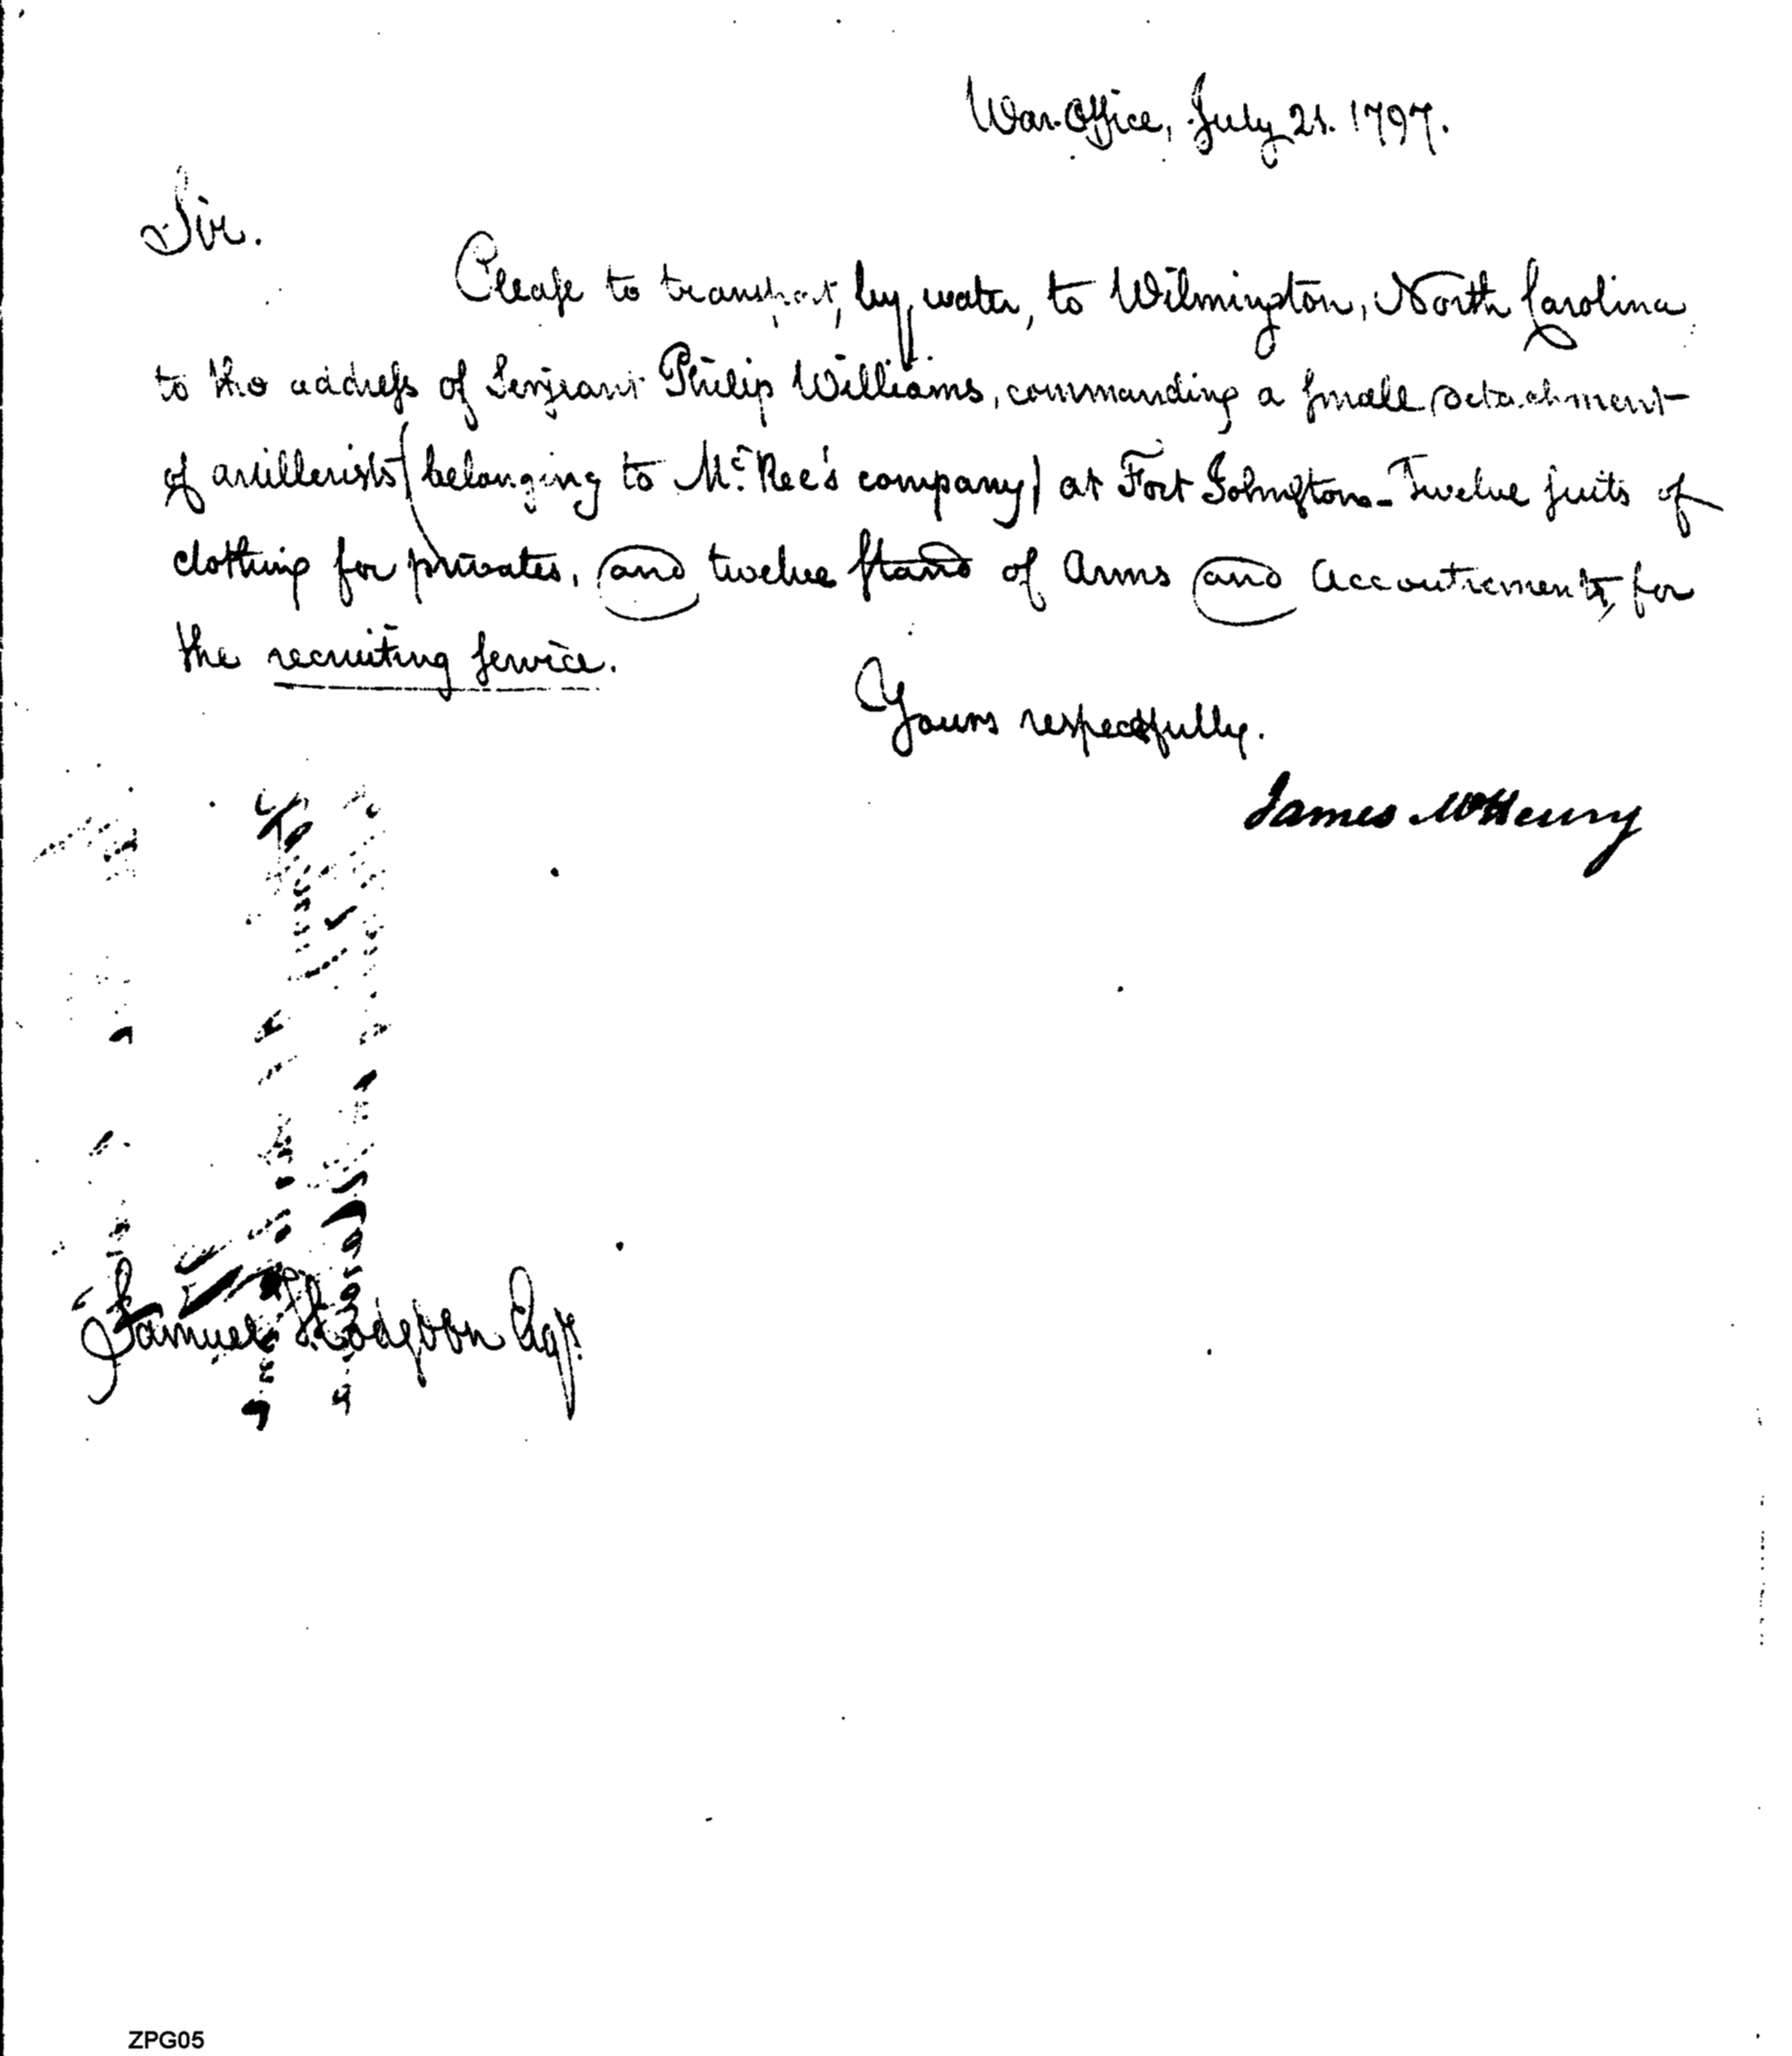 War-Office, July 21. 1797.
Sir.
Please to transport, by water, to Wilmington, North Carolina
to the address of Serjeant Philip Williams, commanding a small detachment
of artillerists (belonging to Mc.Ree's company) at Fort Johnston - Twelve suits of
clothing for privates, and twelve stand of Arms and Accoutrements, for
the recruiting service.
Yours respectfully.
James McHenry
Samuel Hodgdon Esqr.
ZPG05